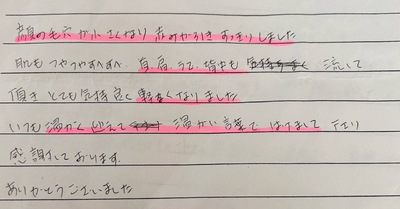 顔の毛穴が小さくなり 赤みがひき すっきりしました
肌もつやつやすべすべ 肩 うで、背中も 流して
頂き とても気持良く 軽くなりました
いつも温かく迎えて 温かい言葉ではげまして 下さり
感謝しております。
ありがとうございました